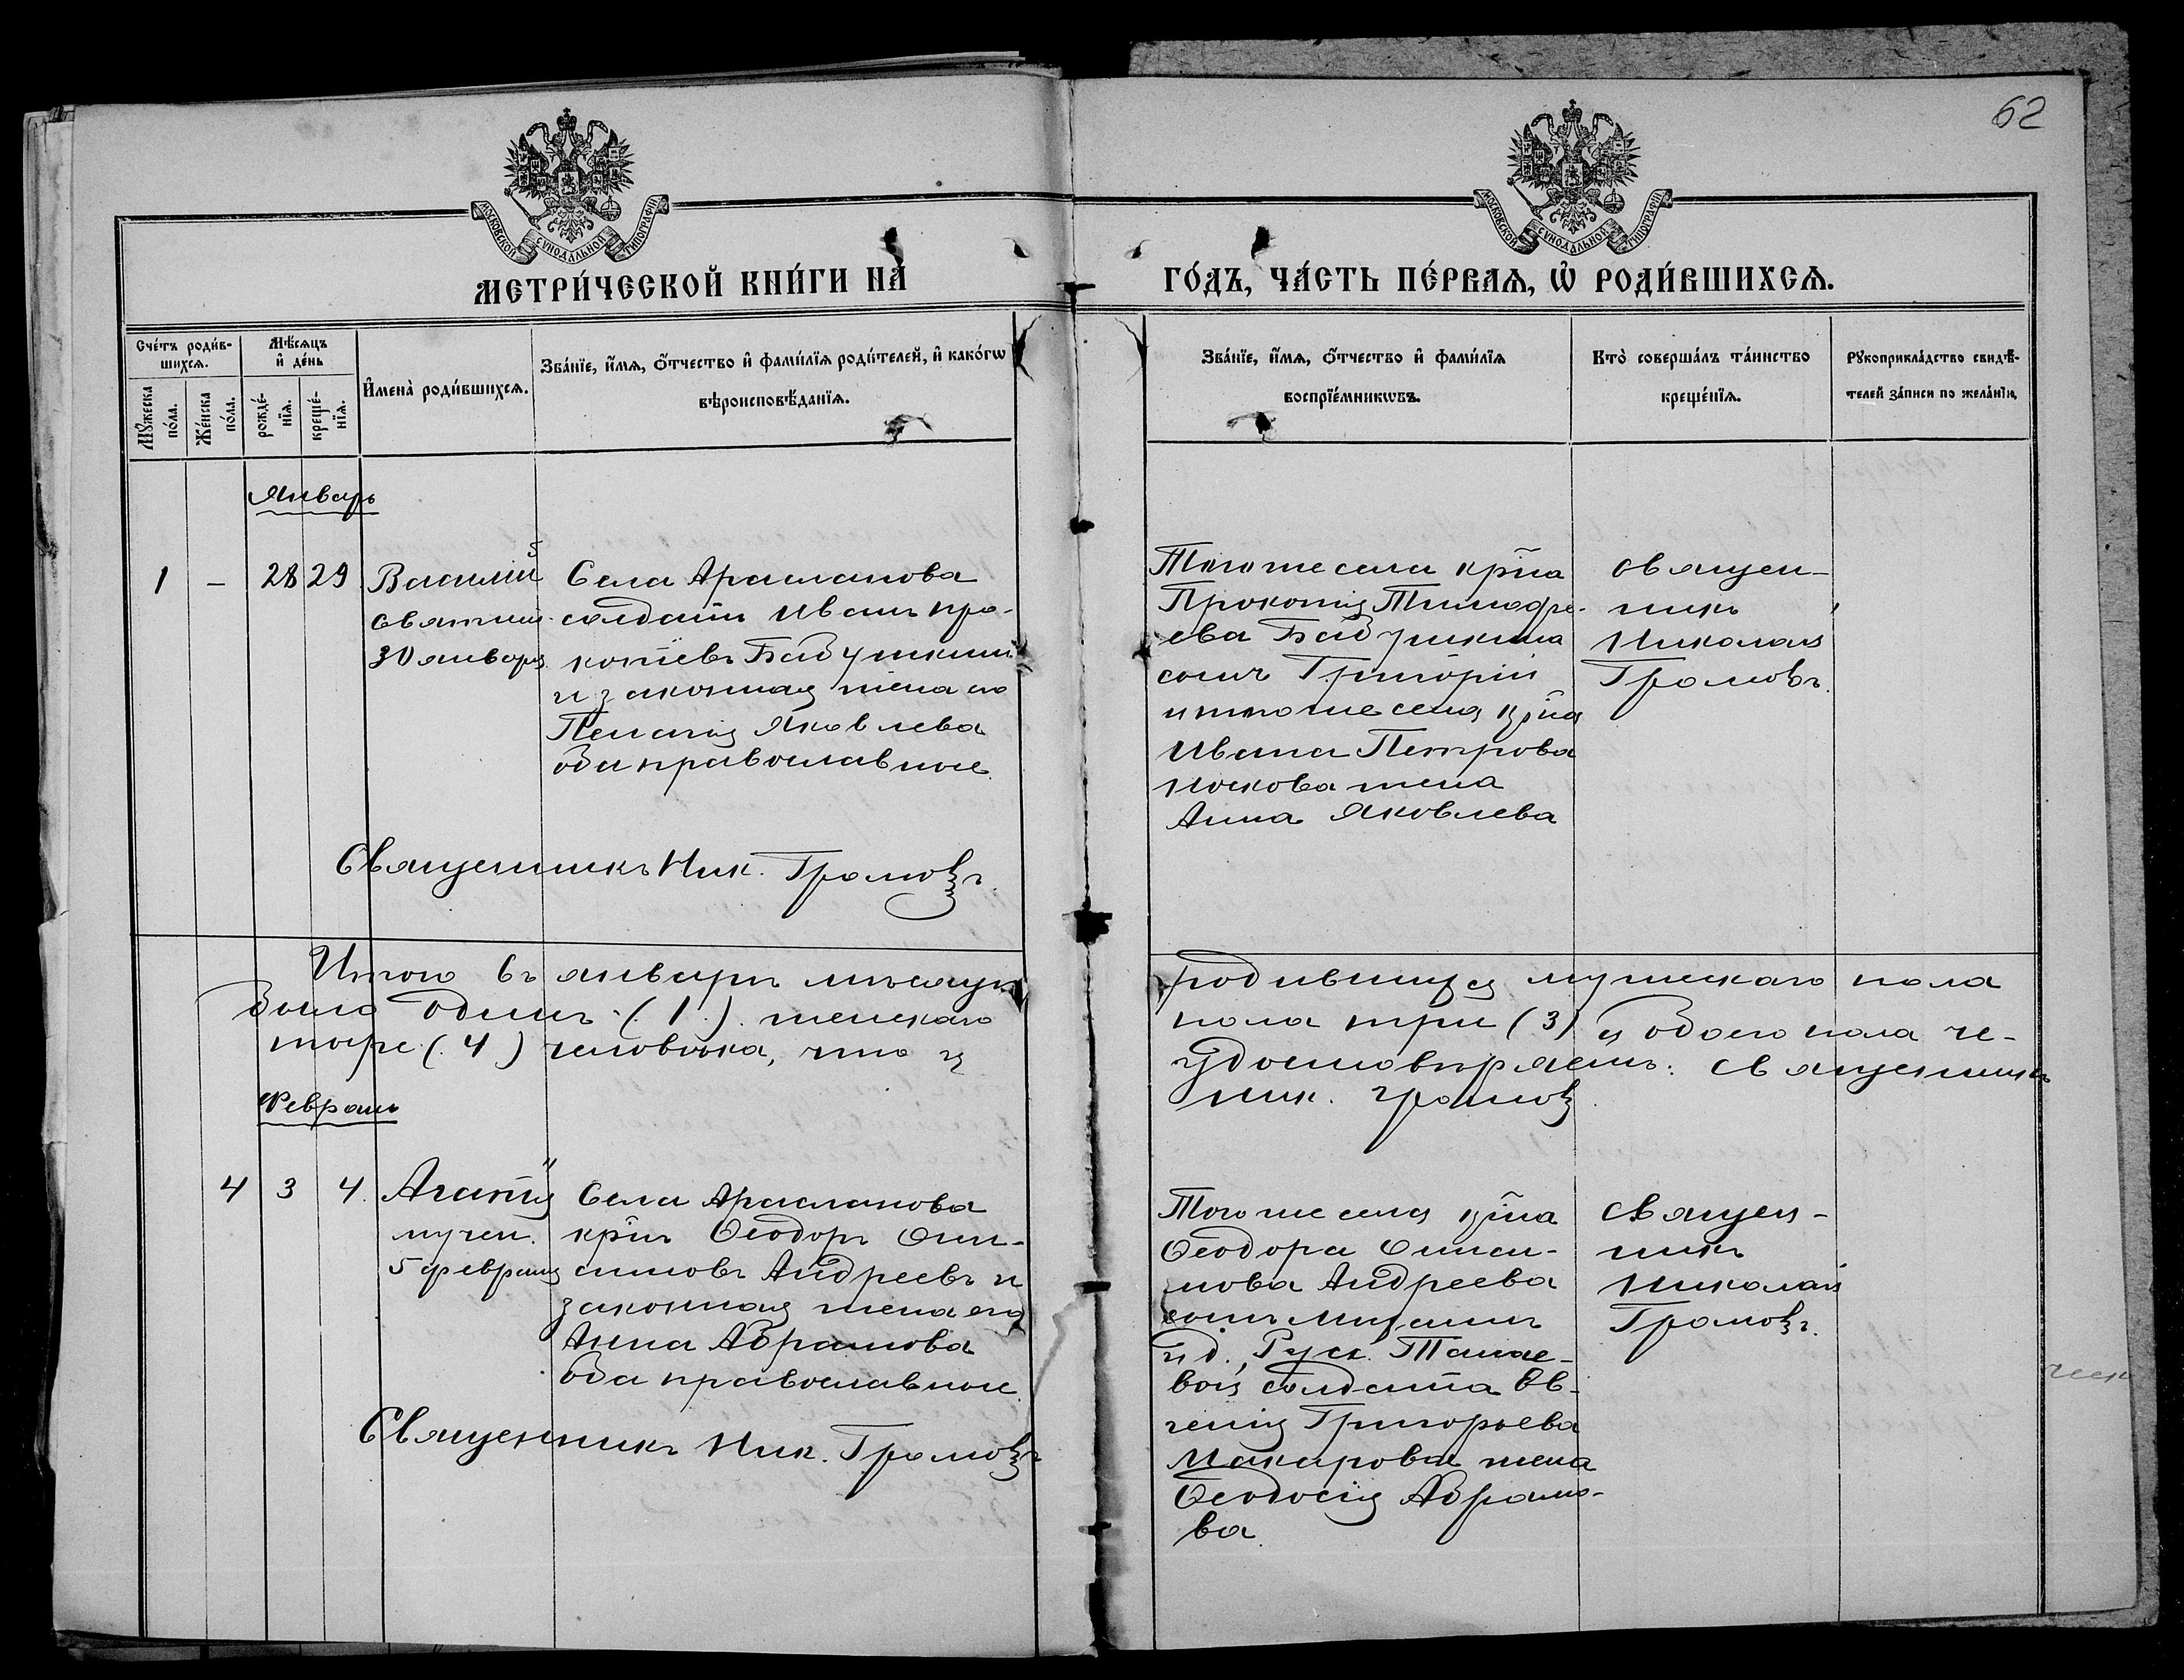 62
МОСКОВСКОЙ СѴНОДАЛЬНОЙ ТИПОГРАФІИ
МОСКОВСКОЙ СѴНОДАЛЬНОЙ ТИПОГРАФІИ
МЕТРИ́ЧЕСКОЙ КНИ́ГИ НА̀
ГО́ДЪ, ЧА́СТЬ ПЕ́РВАѦ, Ѡ҆ РОДИ́ВШИХСѦ.
Сче́тъ роди́в-
шихсѧ.
Мꙋ́жеска
по́ла.
Же́нска
по́ла.
Мѣ́сѧцъ
и҆ де́нь
рожде́-
нїѧ.
креще́-
нїѧ.
И҆мена̀ роди́вшихсѧ.
Зва́нїе, и҆́мѧ, ѻ҆́тчество и҆ фами́лїѧ роди́телей, и҆ како́гѡ
вѣроисповѣ́данїѧ.
Зва́нїе, и҆́мѧ, ѻ҆́тчество и҆ фами́лїѧ
воспрїе́мникѡвъ.
Кто̀ соверша́лъ та́инство
креще́нїѧ.
Рꙋкоприкла́дство свидѣ́-
телей за́писи по жела́нїю.
Январь
1 – 28 29
Василій
святит.
30 января
Села Арасланова
солдатъ Иванъ Про-
копіевъ Байдушкинъ
и законная жена его
Пелагія Яковлева
оба православные.
Тогоже села кр̃на
Прокопія Тимофе-
ева Байдушкина
сынъ Григорій
и тогоже села кр̃на
Ивана Петрова
Носкова жена
Анна Яковлева
Священ-
никъ
Николай
Громовъ.
Священникъ Ник. Громовъ.
Итого въ январѣ мѣсяцѣ родившихся мужескаго пола
было одинъ (1). женскаго пола три (3) и обоего пола че-
тыре (4) человѣка, что и удостовѣряетъ: Священникъ
Ник. Громовъ
Февраль
4 3 4.
Агаѳія
мучен.
5 февраля
Села Арасланова
кр̃нъ Ѳеодоръ Они-
симовъ Андреевъ и
законная жена его
Анна Абрамова
оба православные.
Тогоже села кр̃на
ѲеодораОниси-
мова Андреева
сынъ Михаилъ
и д., Руск. Танае-
вой солдата Ев-
генія Григорьева
Макарова жена
Ѳеодосія Абрамо-
ва.
Священ-
никъ
Николай
Громовъ.
Священникъ Ник. Громовъ